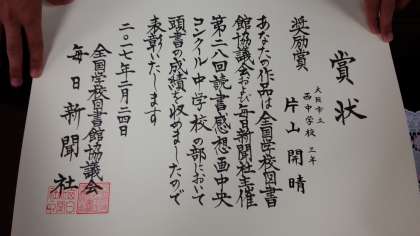 賞状
奨励賞
大阪市立
西中学校 三年
片山開晴
あなたの作品は全国学校図書
館協議会および毎日新聞社主催
第二八回読書感想画中央
コンクール中学校の部において
頭書の成績を収めましたので
表彰いたします
二〇一七年二月二四日
全国学校図書館協議会
毎日新聞社